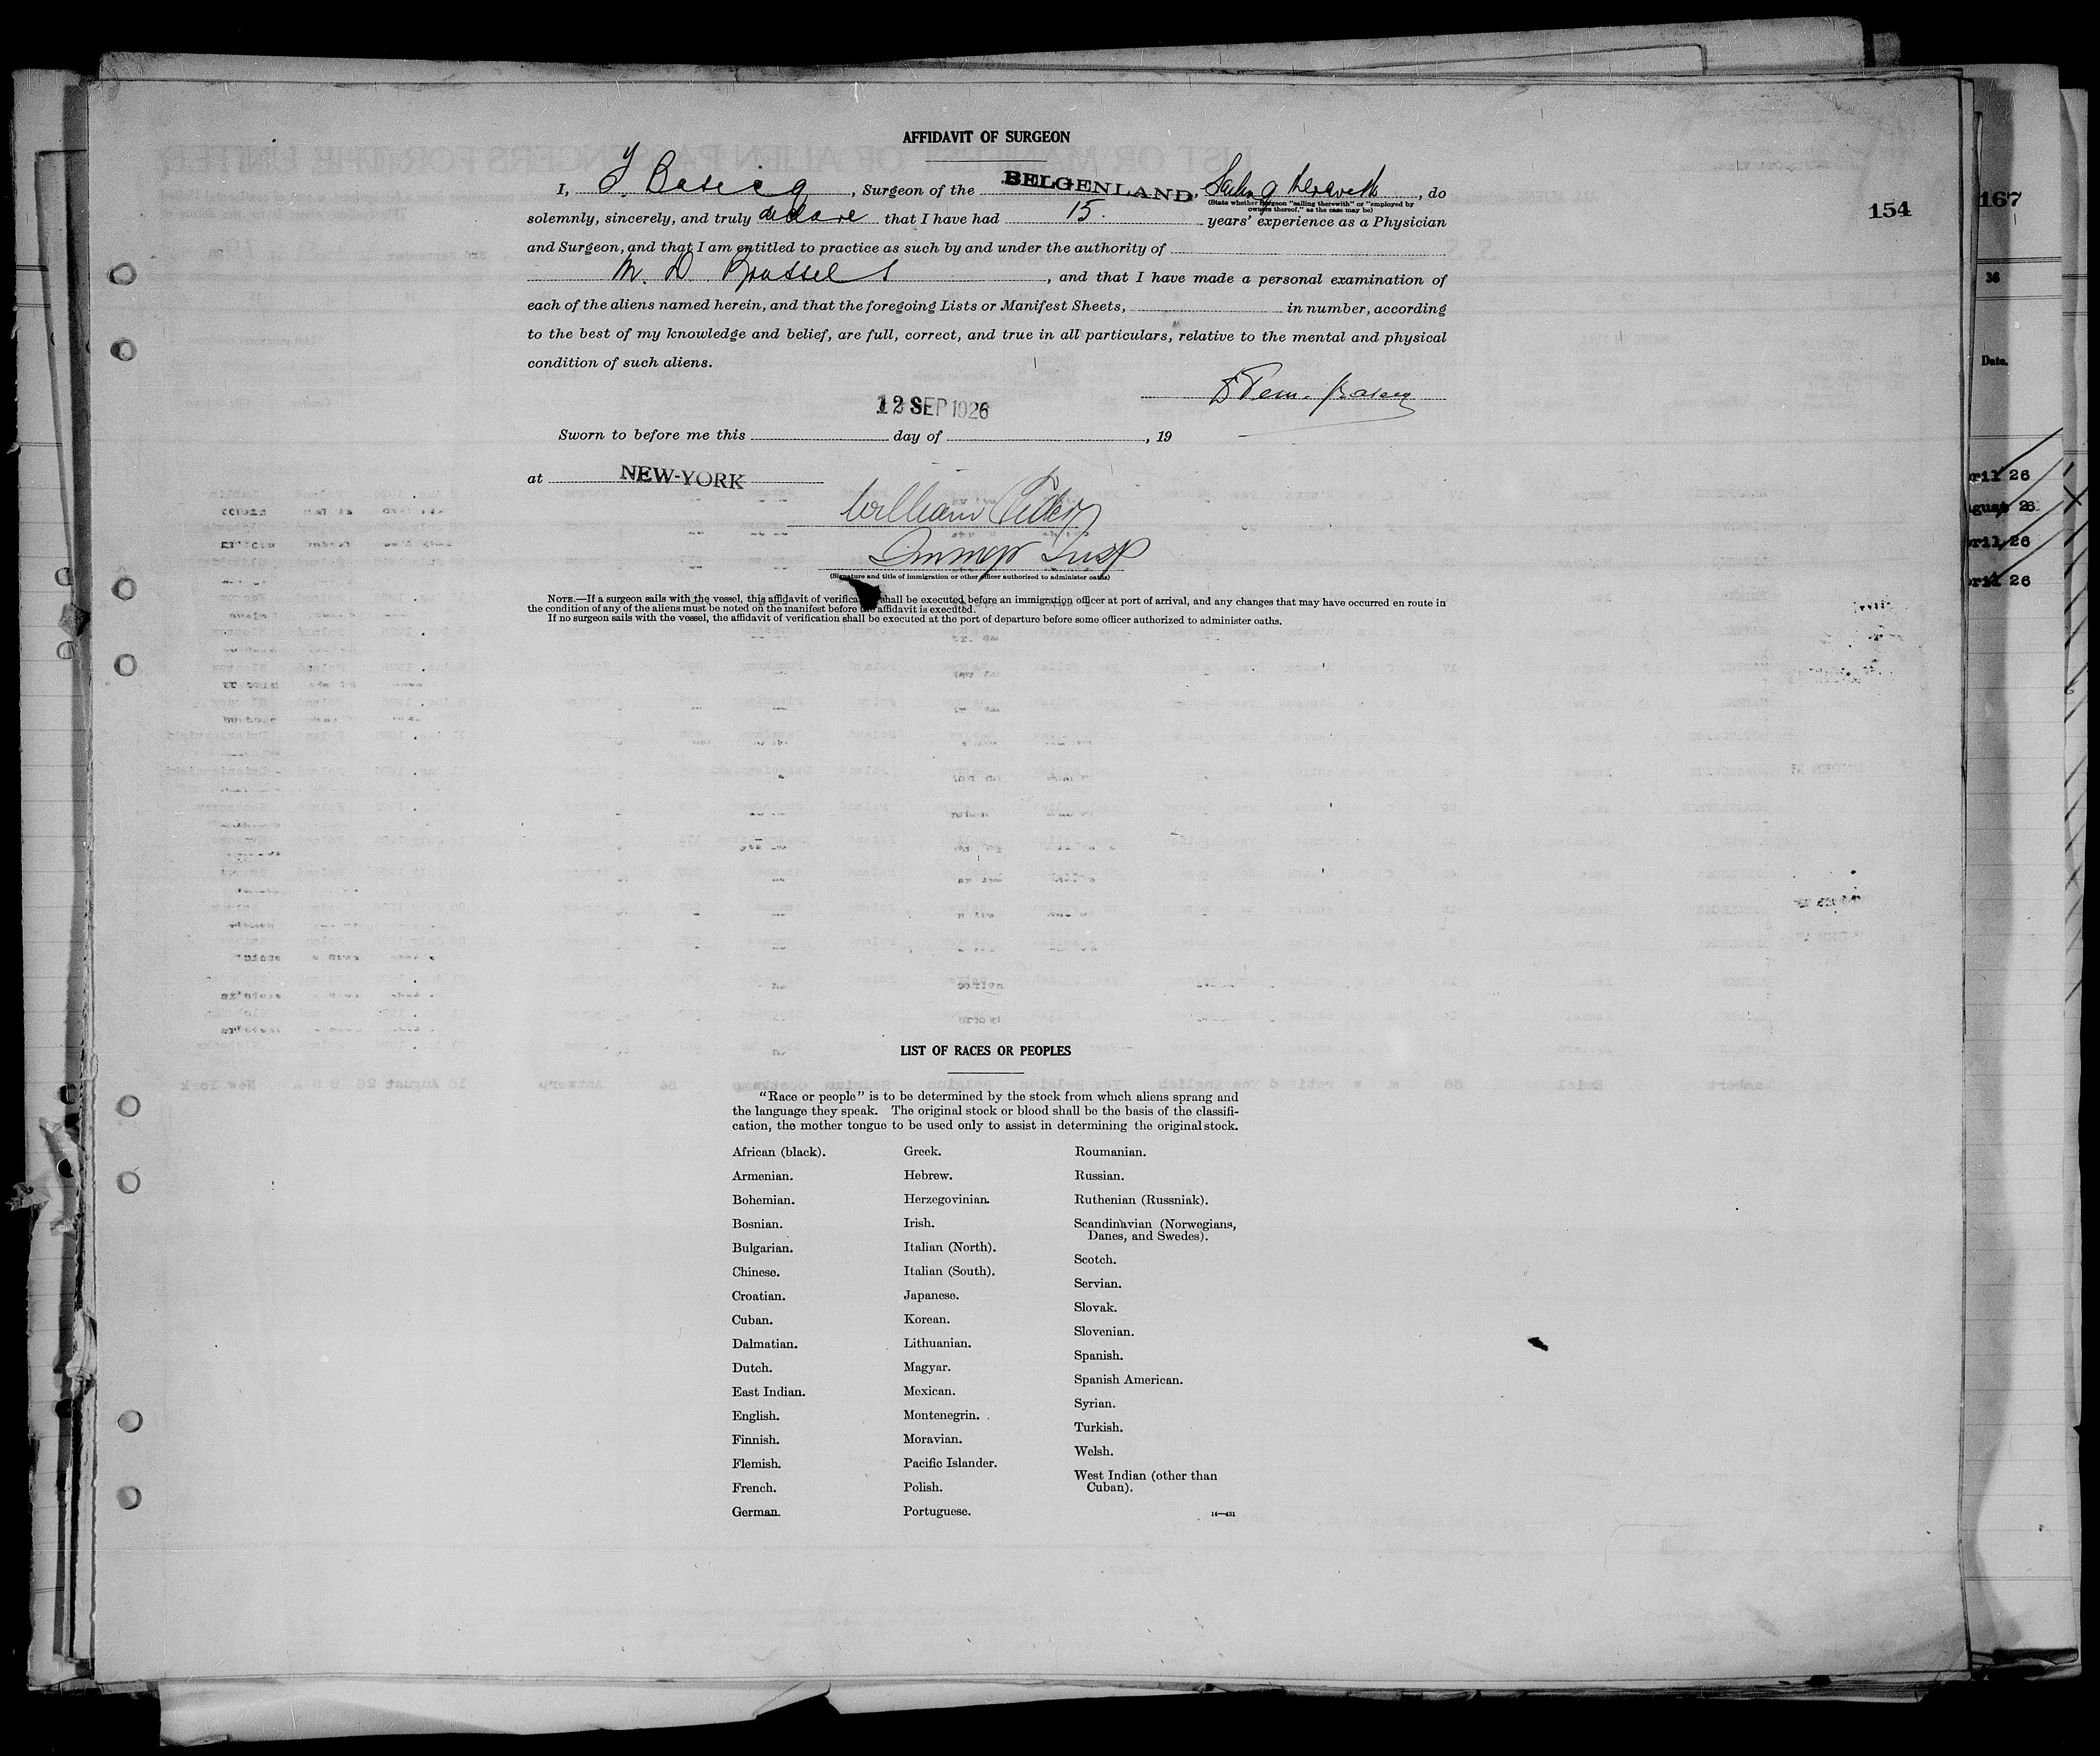 AFFIDAVIT OF SURGEON
154
167
I, , Surgeon of the BELGENLAND, Sailing therewith, do
(State whether Surgeon "sailing therewith" or "employed by
owners thereof," as the case may be)
solemnly, sincerely, and truly declare that I have had 15. years' experience as a Physician
and Surgeon, and that I am entitled to practice as such by and under the authority of
M. D. Brussels, and that I have made a personal examination of
each of the aliens named herein, and that the foregoing Lists or Manifest Sheets, in number, according
to the best of my knowledge and belief, are full, correct, and true in all particulars, relative to the mental and physical
condition of such aliens.
12 SEP 1926
Sworn to before me this day of , 19
at NEW-YORK
William
Immgr Insp
(Signature and title of immigration or other officer authorized to administer oaths)
NOTE.—If a surgeon sails with the vessel, this affidavit of verification shall be executed before an immigration officer at port of arrival, and any changes that may have occurred en route in
the condition of any of the aliens must be noted on the manifest before the affidavit is executed.
If no surgeon sails with the vessel, the affidavit of verification shall be executed at the port of departure before some officer authorized to administer oaths.
36
Date.
ril 26
gust 26
ril 26
ril 26
LIST OF RACES OR PEOPLES
"Race or people" is to be determined by the stock from which aliens sprang and
the language they speak. The original stock or blood shall be the basis of the classifi-
cation, the mother tongue to be used only to assist in determining the original stock.
African (black).
Armenian.
Bohemian.
Bosnian.
Bulgarian.
Chinese.
Croatian.
Cuban.
Dalmatian.
Dutch.
East Indian.
English.
Finnish.
Flemish.
French.
German.
Greek.
Hebrew.
Herzegovinian.
Irish.
Italian (North).
Italian (South).
Japanese.
Korean.
Lithuanian.
Magyar.
Mexican.
Montenegrin.
Moravian.
Pacific Islander.
Polish.
Portuguese.
Roumanian.
Russian.
Ruthenian (Russniak).
Scandinavian (Norwegians,
Danes, and Swedes).
Scotch.
Servian.
Slovak.
Slovenian.
Spanish.
Spanish American.
Syrian.
Turkish.
Welsh.
West Indian (other than
Cuban).
14—431